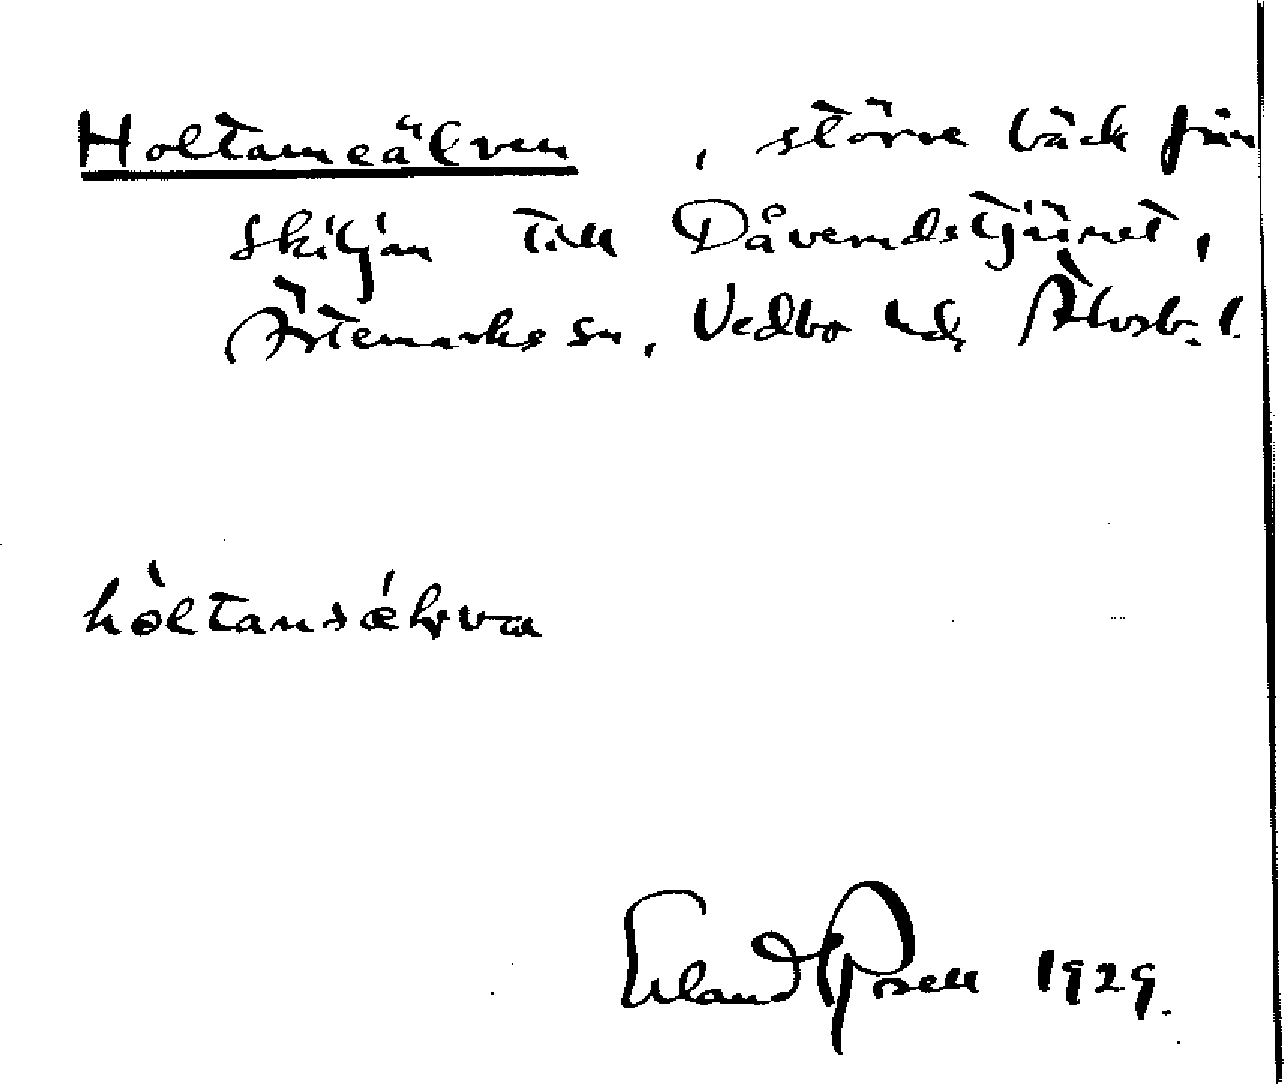 Holtaneälven, större bäck från
skiljan till Dåverudstjärnet,
Ärtemarks sn, Vedbo hd, Älvsb. l.
hòltansǽlva
Erland Rosell 1929.